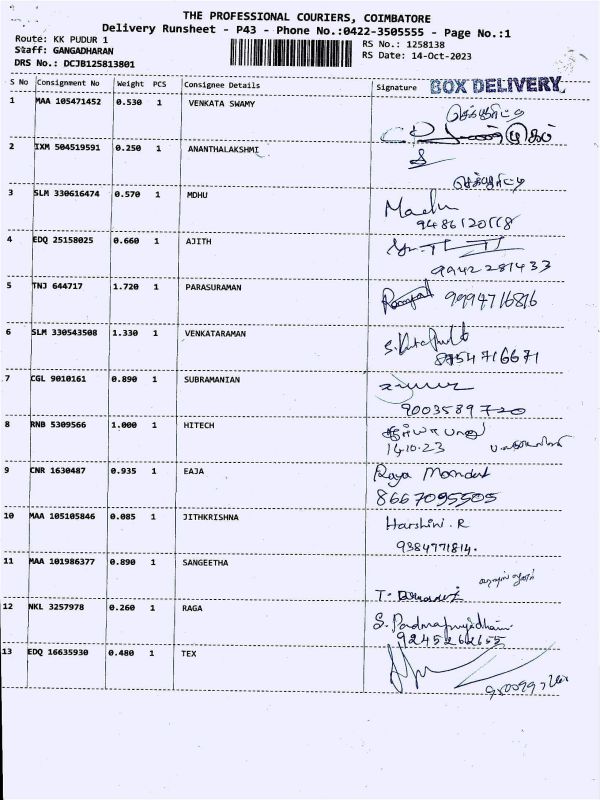 THE PROFESSIONAL COURIERS, COIMBATORE
Delivery Runsheet - P43 - Phone No.:0422-3505555 - Page No.:1
Route: KK PUDUR 1
RS No.: 1258138
Staff: GANGADHARAN
RS Date: 14-Oct-2023
DRS No.: DCJB125813801
S No Consignment No Weight PCS Consignee Details Signature BOX DELIVERY
1 MAA 105471452 0.530 1 VENKATA SWAMY
2 IXM 504519591 0.250 1 ANANTHALAKSHMI
3 SLM 330616474 0.570 1 MDHU
4 EDQ 25158025 0.660 1 AJITH
9942281433
5 TNJ 644717 1.720 1 PARASURAMAN
9994716816
6 SLM 330543508 1.330 1 VENKATARAMAN
8754716671
7 CGL 9010161 0.890 1 SUBRAMANIAN
9003589720
8 RNB 5309566 1.000 1 HITECH
14.10.23
9 CNR 1630487 0.935 1 EAJA
8667095505
10 MAA 105105846 0.085 1 JITHKRISHNA Harshini. R
9384771814.
11 MAA 101986377 0.890 1 SANGEETHA
12 NKL 3257978 0.260 1 RAGA
13 EDQ 16635930 0.480 1 TEX